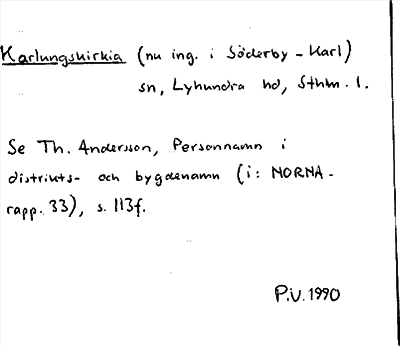 Karlungskirkia (nu ing. i Söderby-Karl)
sn, Lyhundra hd, Sthlm. l.
Se Th. Andersson, Personnamn i
distrikts- och bygdenamn (i: NORNA-
rapp. 33), s. 113f.
P.V. 1990